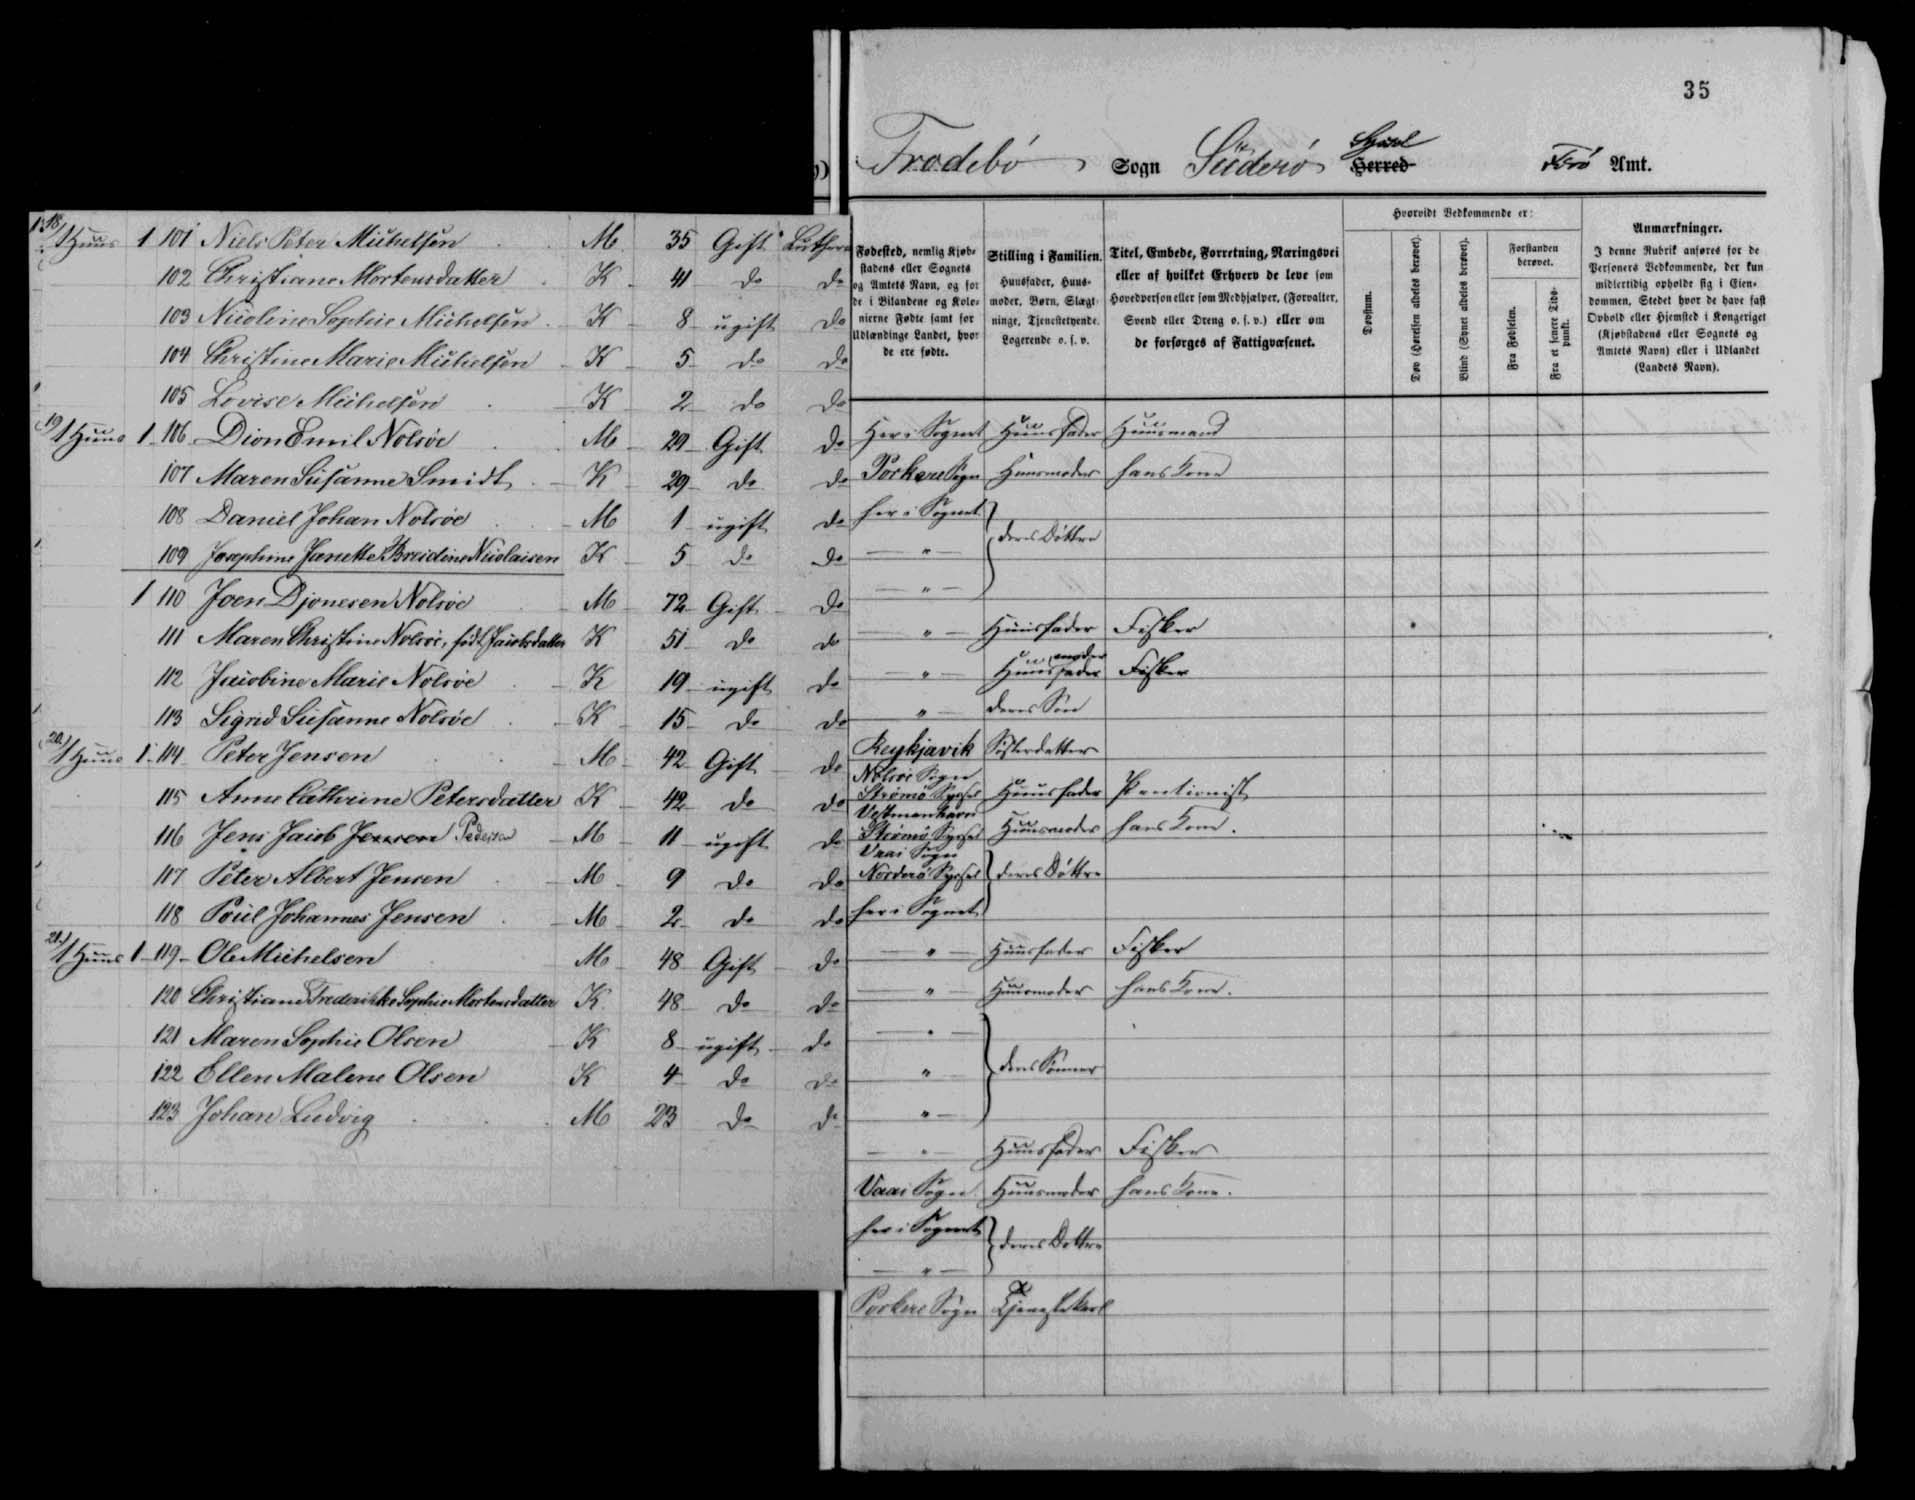 35
Trodebö Sogn Süderö Syssel Herred Færö Amt.
Fødested, nemlig Kjøbstadens eller Sognets og Amtets Navn, og for de i Bilandene og Kolonierne Fødte samt for Udlændinge Landet, hvor de ere fødte.
Stilling i Familien.
Huusfader, Huusmoder, Børn, Slægtninge, Tjenestetyende, Logerende o. s. v.
Titel, Embede, Forretning, Næringsvei eller af hvilket Erhverv de leve som Hovedperson eller som Medhjælper, (Forvalter, Svend eller Dreng o. s. v.) eller om de forsørges af Fattigvæsenet.
Hvorvidt Vedkommende er:
Døvstum.
Døv (Hørelsen aldeles berøvet).
Blind (Synet aldeles berøvet).
Forstanden berøvet.
Fra Fødselen.
Fra et senere Tidspunkt.
Anmærkninger.
I denne Rubrik anføres for de Personers Vedkommende, der kun midlertidig opholde sig i Eiendommen, Stedet hvor de have fast Ophold eller Hjemsted i Kongeriget (Kjøbstadens eller Sognets og Amtets Navn) eller i Udlandet (Landets Navn).
18) 1 Huus 1 101 Niels Peter Michelsen M 35 Gift Luthera
102 Christiane Mortensdatter K 41 do do
103 Nicoline Sophie Michelsen K 8 ugift do
104 Christine Marie Michelsen K 5 do do
105 Lovise Michelsen K 2 do do
19) 1 Huus 1 106 Dion Emil Nolsöe M 29 Gift do
107 Maren Susanne Smidt K 29 do do
108 Daniel Johan Nolsöe M 1 ugift do
109 Josephine Janette Breidine Nicolaisen K 5 do do
1 110 Joen Djonesen Nolsöe M 72 Gift do
111 Maren Christine Nolsöe, født Jacobsdatter K 51 do do
112 Jacobine Marie Nolsöe K 19 ugift do
113 Sigrid Susanne Nolsöe K 15 do do
20) 1 Huus 1 114 Peter Jensen M 42 Gift do
115 Anne Cathrine Petersdatter K 42 do do
116 Jens Jacob Jensen Pedersen M 11 ugift do
117 Peter Albert Jensen M 9 do do
118 Poul Johannes Jensen M 2 do do
21) 1 Huus 1 119 Ole Michelsen M 48 Gift do
120 Christiane Frederikke Sophie Mortensdatter K 48 do do
121 Maren Sophie Olsen K 8 ugift do
122 Ellen Malene Olsen K 4 do do
123 Johan Ludvig M 23 do do
Her i Sognet Huusfader Huusmand
Porkere Sogn Huusmoder hans Kone
her i Sognet
— " — deres Döttre
— " —
— " — Huusfader Fisker
— " — Huusfader moder Fisker
— " — deres Sön
Reykjavik Sösterdatter
Nolsöe Sogn
Strömö Syssel Huusfader Pentionist
Vestmanhavn
Strömö Syssel Huusmoder hans Kone.
Vaai Sogn
Norderö Syssel deres Döttre
her i Sognet
— " — Huusfader Fisker
— " — Huusmoder hans Kone.
— " —
— " — deres Sönner
— " —
— " — Huusfader Fisker
Vaai Sogn Huusmoder hans Kone.
her i Sognet deres Döttre
— " —
Porkere Sogn Tjenestekarl